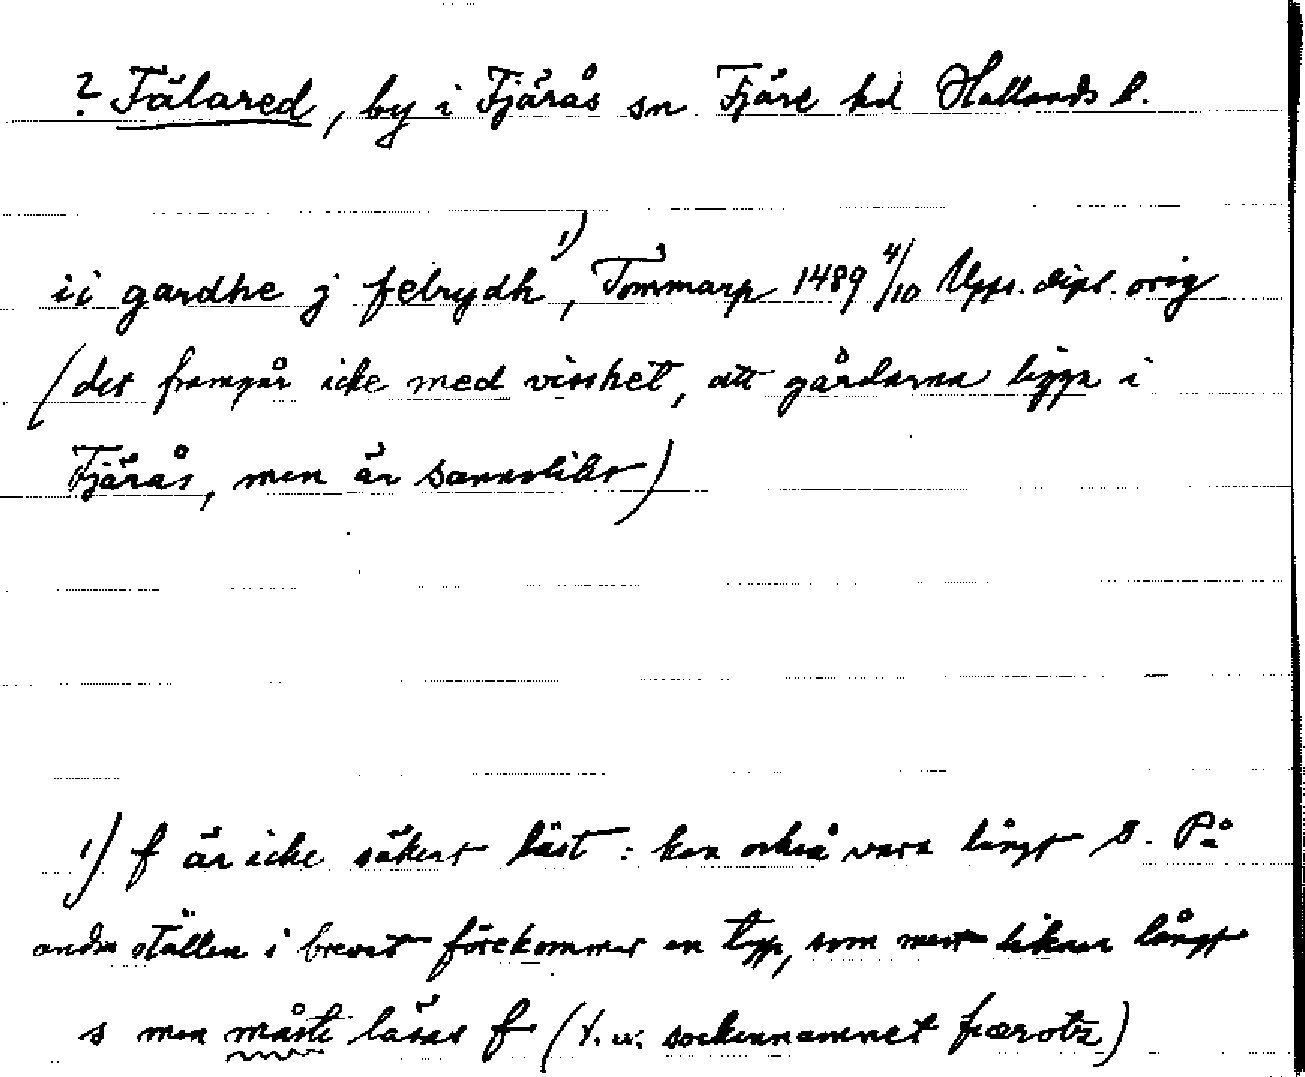 ? Tälared, by i Fjärås sn Fjäre hd Hallands l.
ii gardhe j felrydh 1), Tommarp 1489 4/10 Upps. dipl. orig
(det framgår icke med visshet, att gårdarna ligga i
Fjärås, men är sannolikt)
1) f är icke säkert läst: kan också vara långt s. På
andra ställen i brevet förekommer en typ, som mest liknar långt
s men måste läsas f (t. ex. sockennamnet fiærotz)